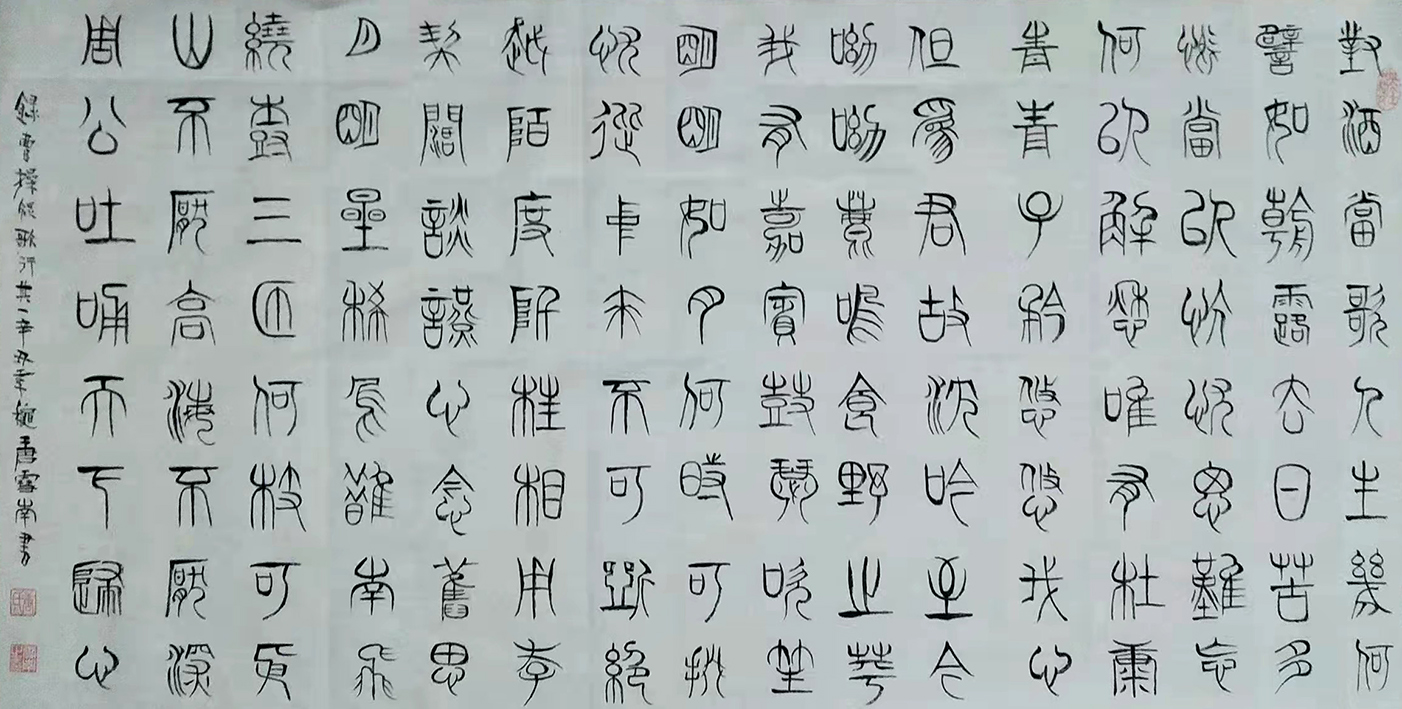 對酒當歌人生幾何
譬如朝露去日苦多
慨當以慷忧思難忘
何以解愁唯有杜康
青青子衿悠悠我心
但為君故沈吟至今
呦呦鹿鳴食野之苹
我有嘉賓鼓瑟吹笙
明明如月何時可掇
忧從中來不可斷絕
越陌度阡枉相用存
契闊談讌心念舊恩
月明星稀烏鵲南飛
繞樹三匝何枝可依
山不厭高海不厭深
周公吐哺天下歸心
錄曹操短歌行其一辛丑雪南書